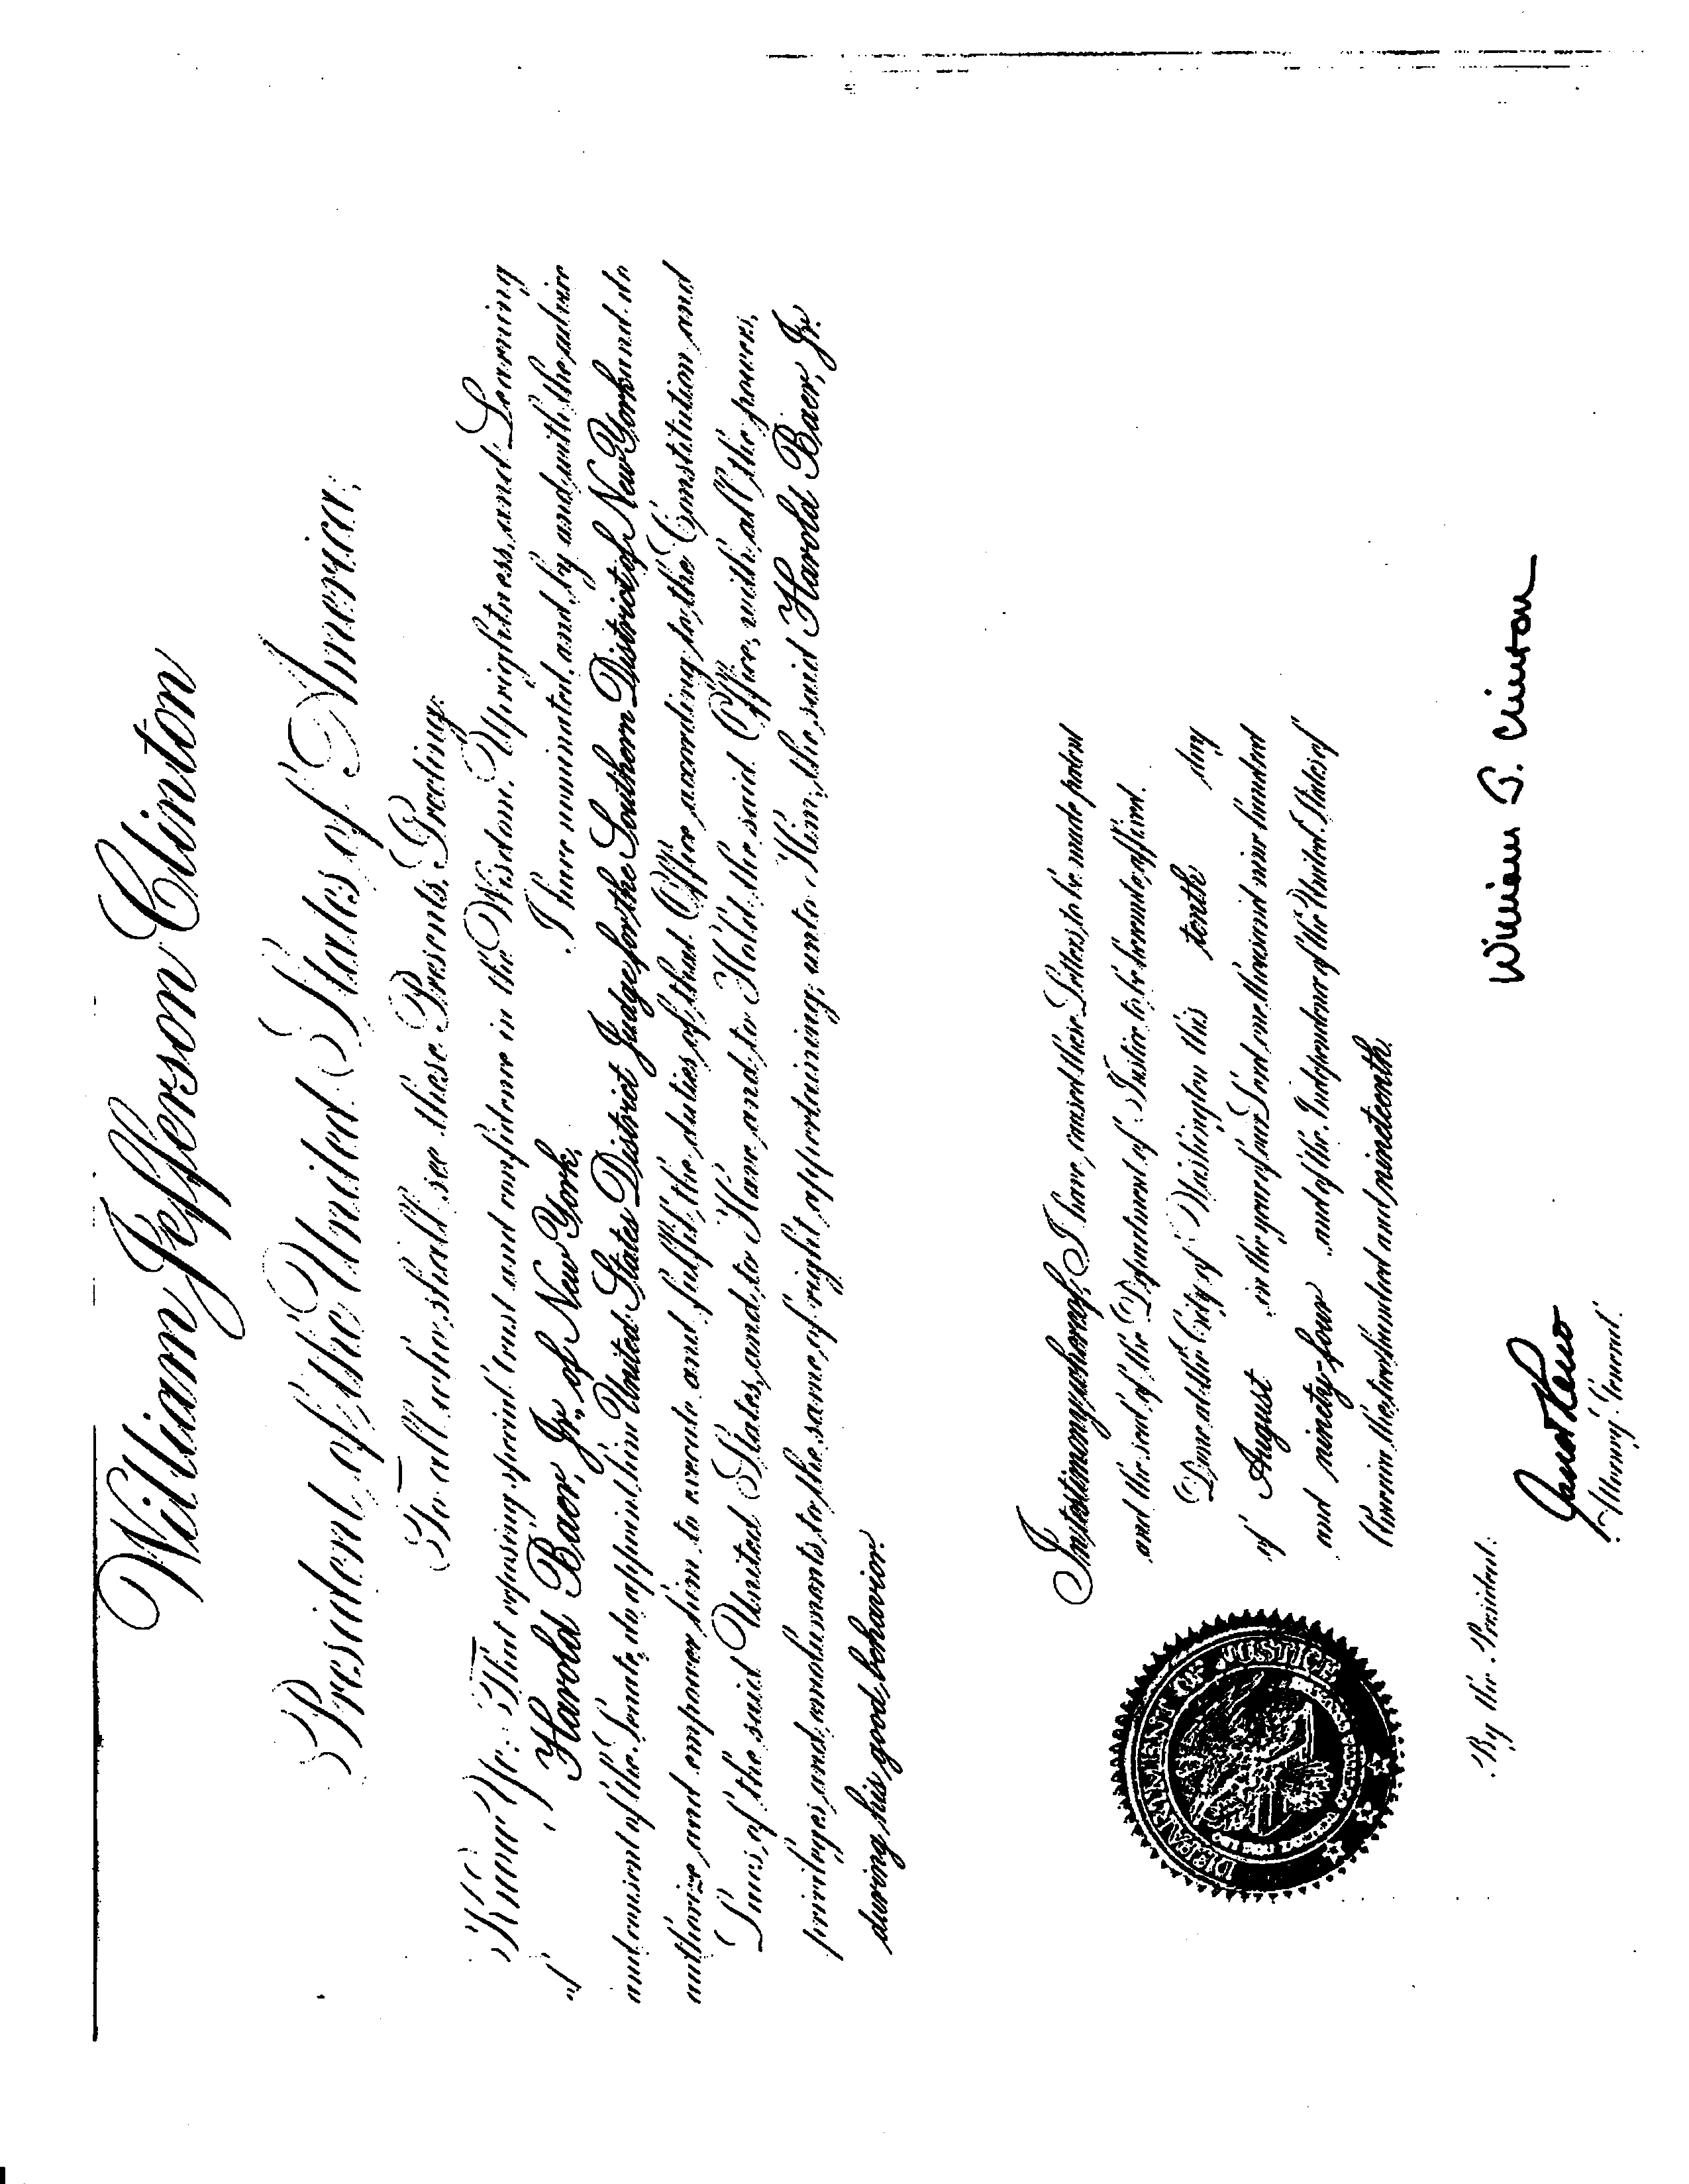 William Jefferson Clinton
President of the United States of America,
To all who shall see these Presents, Greeting:
Know Ye: That reposing special trust and confidence in the Wisdom, Uprightness, and Learning
of Harold Baer, Jr., of New York, I have nominated, and, by and with the advice
and consent of the Senate, do appoint him United States District Judge for the Southern District of New York and do
authorize and empower him to execute and fulfil the duties of that Office according to the Constitution and
Laws of the said United States, and to Have and to Hold the said Office, with all the powers,
privileges and emoluments to the same of right appertaining, unto Him, the said Harold Baer, Jr.
during his good behavior.
In testimony whereof, I have caused these Letters to be made patent
and the seal of the Department of Justice to be hereunto affixed.
Done at the City of Washington this tenth day
of August in the year of our Lord one thousand nine hundred
and ninety-four and of the Independence of the United States of
America the two hundred and nineteenth.
DEPARTMENT OF JUSTICE
William J. Clinton
By the President:
Janet Reno
Attorney General.